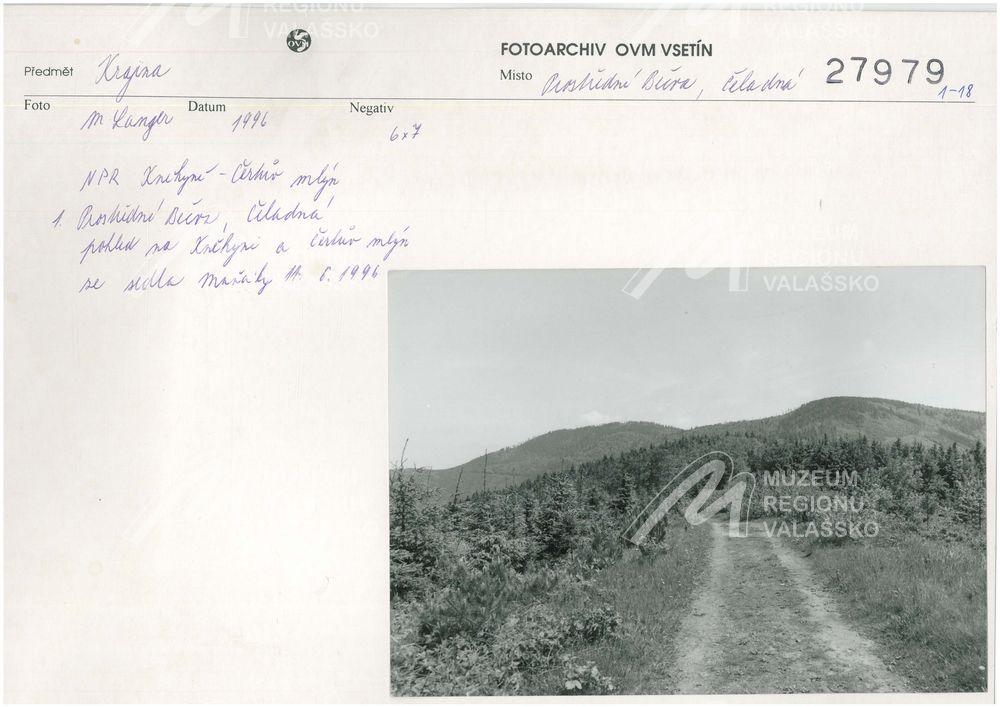 OVM
FOTOARCHIV OVM VSETÍN
Předmět Krajina
Místo Prostřední Bečva, Čeladná 27979
1-18
Foto M Langer Datum 1996 Negativ 6x7
NPR Kněhyně - Čertův mlýn
1. Prostřední Bečva, Čeladná
pohled na Kněhyni a Čertův mlýn
ze sedla Mařáky 11. 6. 1996
REGIONU
VALAŠSKO
MUZEUM
REGIONU
VALAŠSKO
MUZEUM
REGIONU
VALAŠSKO